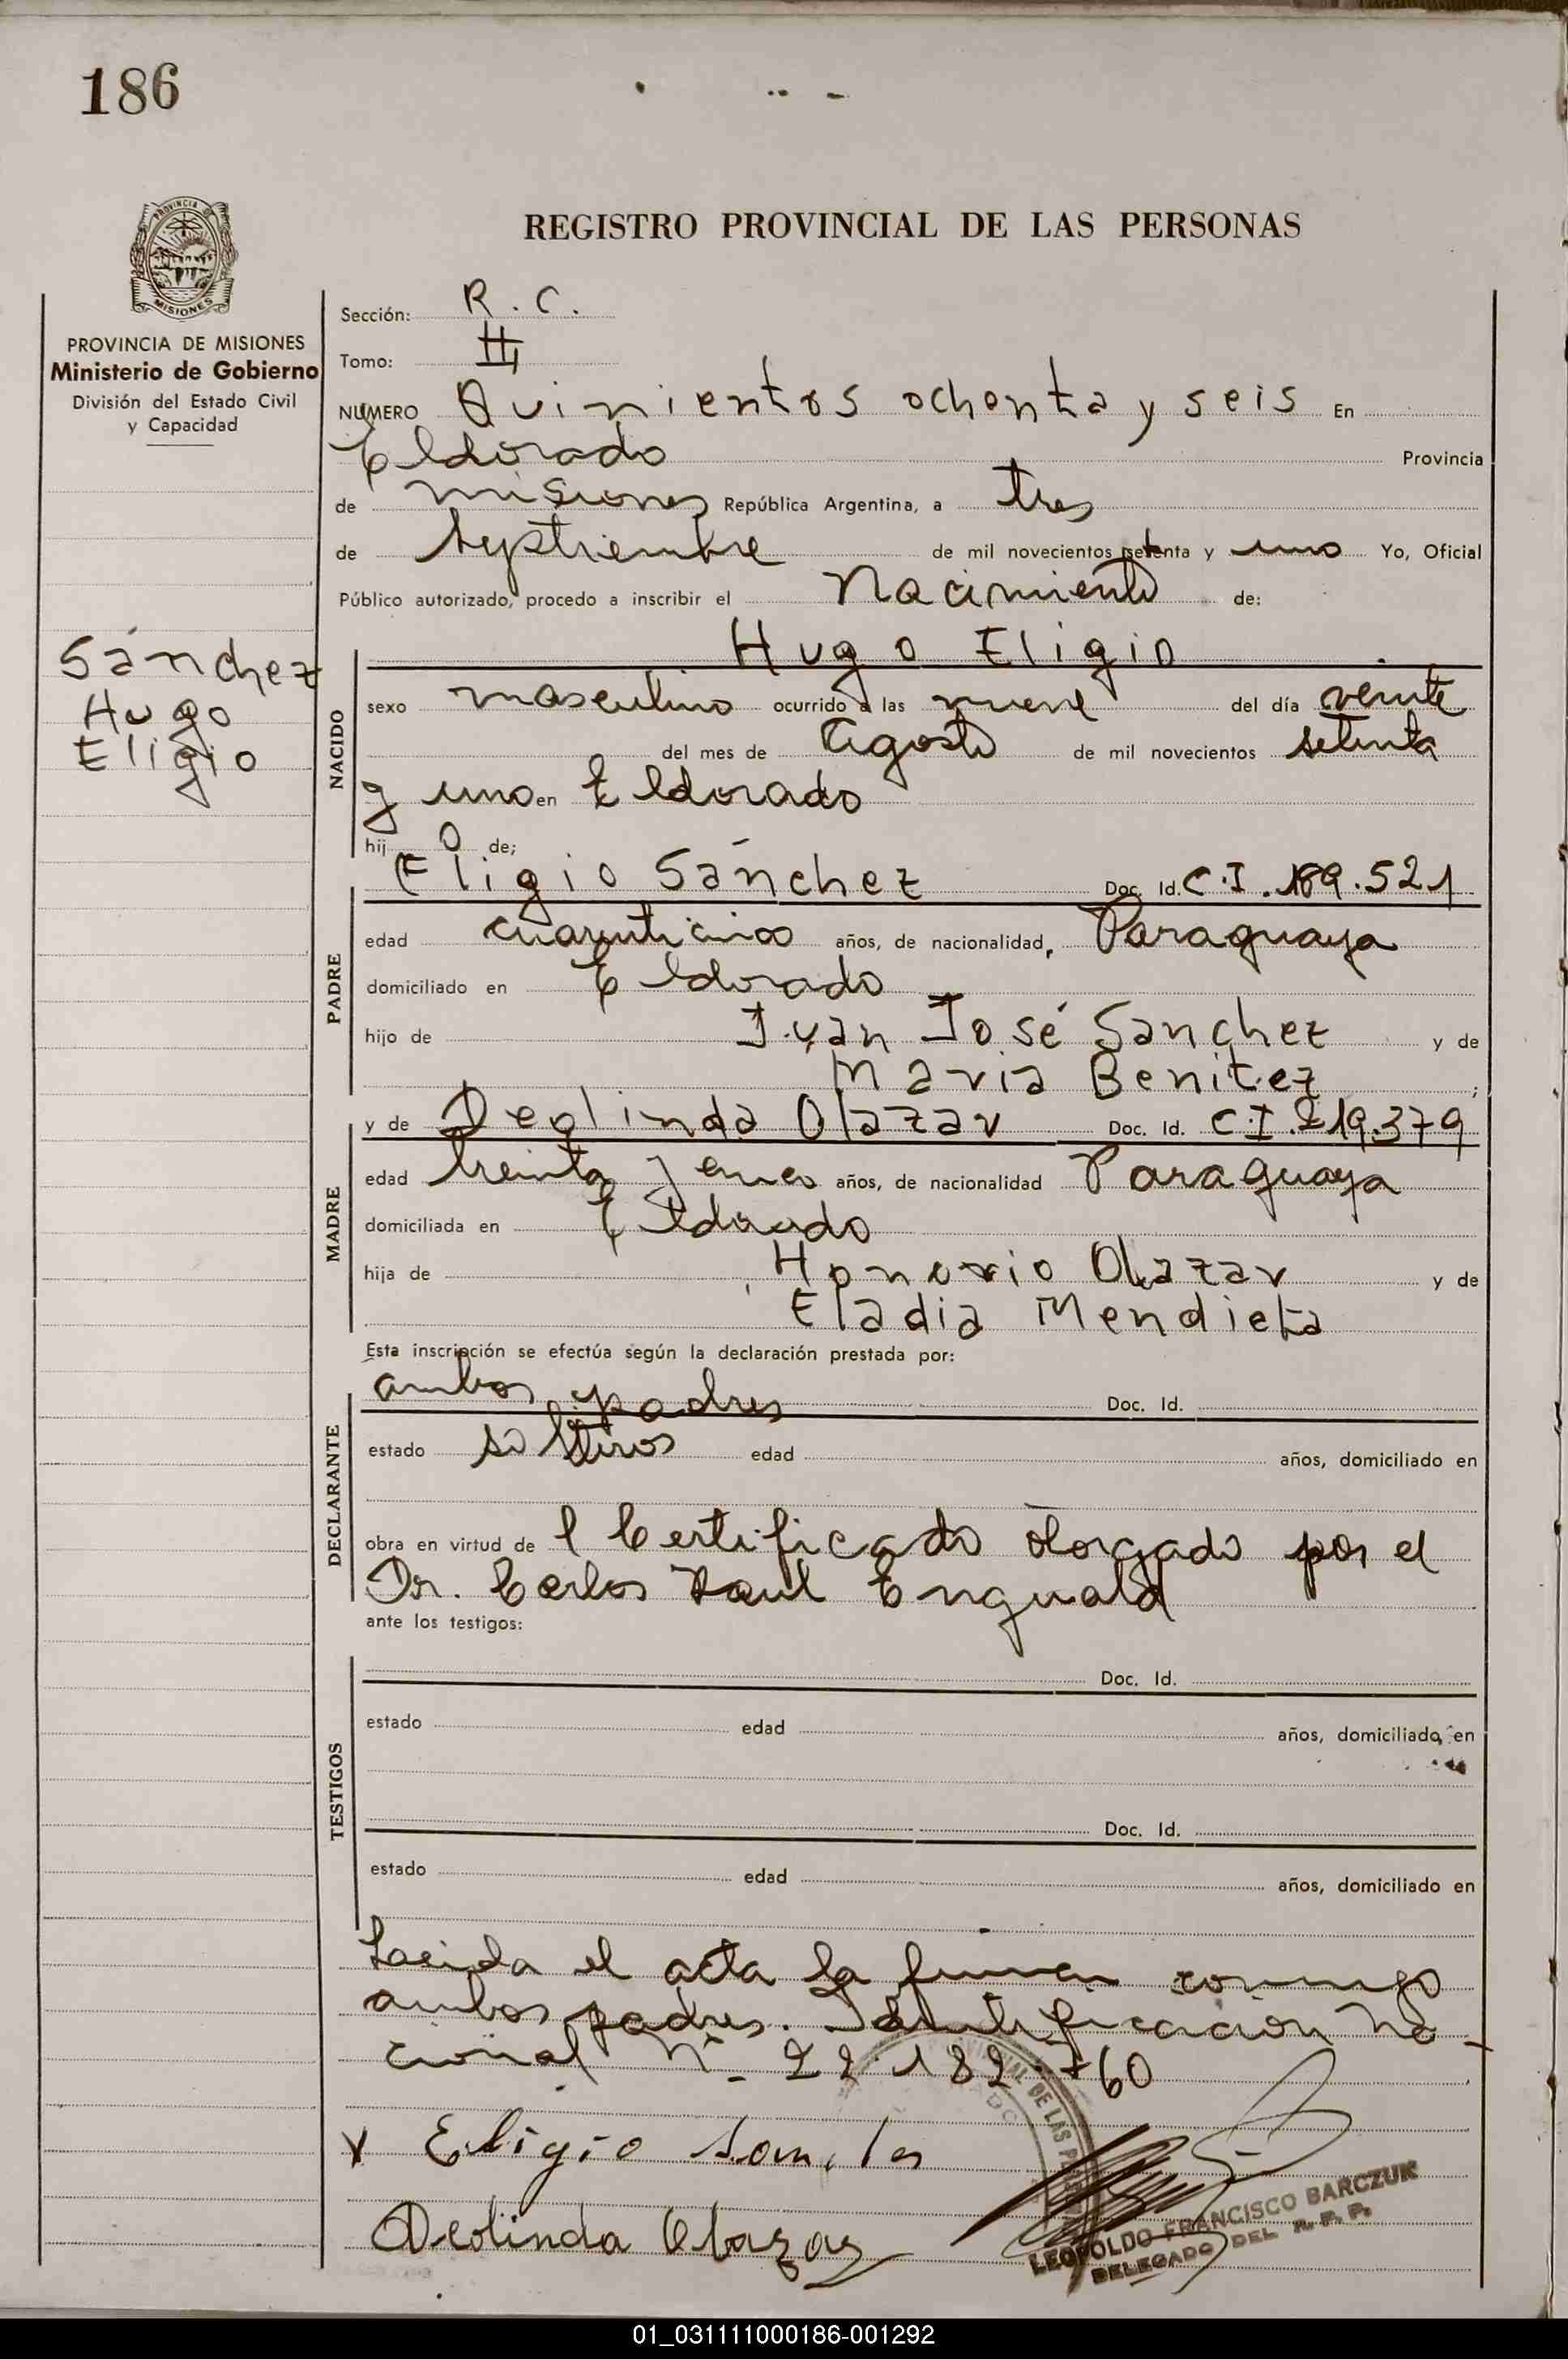 186
PROVINCIA DE
MISIONES
REGISTRO PROVINCIAL DE LAS PERSONAS
PROVINCIA DE MISIONES
Ministerio de Gobierno
División del Estado Civil
y Capacidad
Sánchez
Hugo
Eligio
Sección: R. C.
Tomo: II
NUMERO Quinientos ochenta y seis En
Eldorado Provincia
de misiones República Argentina, a tres
de Septiembre de mil novecientos setenta y uno Yo, Oficial
Público autorizado, procedo a inscribir el Nacimiento de:
NACIDO
Hugo Eligio
sexo masculino ocurrido a las nueve del día veinte
del mes de Agosto de mil novecientos setenta
y uno en Eldorado
hij o de;
PADRE
Eligio Sánchez Doc. Id. C.I. 189.521
edad cuarenticinco años, de nacionalidad, Paraguaya
domiciliado en Eldorado
hijo de Juan José Sanchez y de
Maria Benitez ;
MADRE
y de Deolinda Olazar Doc. Id. C.I. 219.379
edad treinta y años, de nacionalidad Paraguaya
domiciliada en Eldorado
hija de Honorio Olazar y de
Eladia Mendieta
Esta inscripción se efectúa según la declaración prestada por:
DECLARANTE
ambos padres Doc. Id.
estado solteros edad años, domiciliado en
obra en virtud de l Certificado otorgado por el
Dr. Carlos Raul Enguald
ante los testigos:
TESTIGOS
Doc. Id.
estado edad años, domiciliado en
Doc. Id.
estado edad años, domiciliado en
Leida el acta la firman conmigo
ambos padres. Identificación Na-
cional Nº 22.182.760
Eligio
Deolinda Olazar
LEOPOLDO FRANCISCO BARCZUK
DELEGADO DEL R. P. P.
01_031111000186-001292